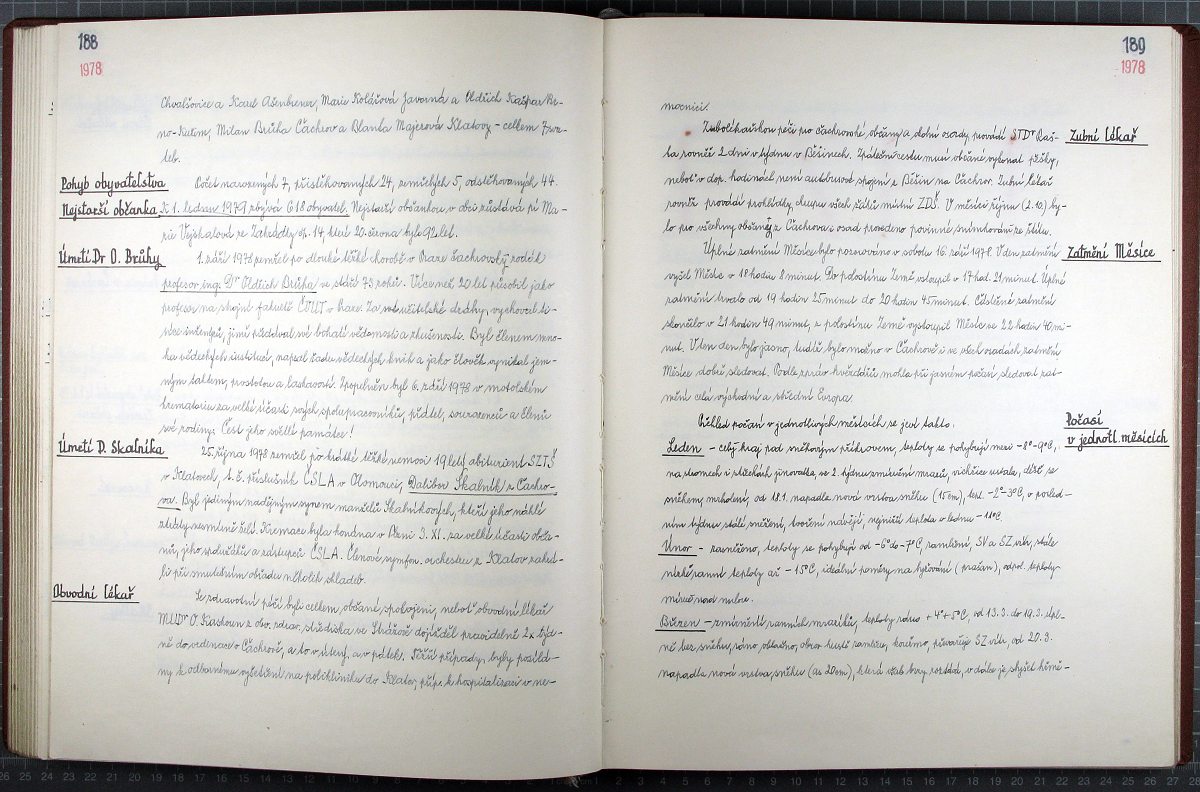 188
1978
Chvalšovice a Karel Ašenbrener, Marie Kolářová Javorná a Oldřich Kašpar Br-
no-Kuřim, Milan Brůha Čachrov a Blanka Majerová Klatovy - celkem 7 svo-
teb.
Pohyb obyvatelstva
Počet narozených 7, přistěhovaných 24, zemřelých 5, odstěhovaných 44.
Nejstarší občanka
K 1. lednu 1979 zbývá 618 obyvatel. Nejstarší občankou v obci zůstává pí Ma-
rie Vejskalová ze Zahrádky čp. 14, které 20. února bylo 92 let.
Úmrtí Dr O. Brůhy
1. září 1978 zemřel po dlouhé těžké chorobě v Praze čachrovský rodák
profesor ing. Dr Oldřich Brůha ve stáří 73 roků. Více než 20 let působil jako
profesor na strojní fakultě ČVUT v Praze. Za své učitelské dráhy, vychoval ti-
síce inženýrů, jimž předával své bohaté vědomosti a zkušenosti. Byl členem mno-
ha vědeckých institucí, napsal řadu vědeckých knih a jako člověk vynikal jem-
ným taktem, prostotou a laskavostí. Zpopelněn byl 6. září 1978 v motolském
krematoriu za velké účasti svých spolupracovníků, přátel, sourozenců a členů
své rodiny. Čest jeho světlé památce!
Úmrtí D. Skalníka
25. října 1978 zemřel po krátké těžké nemoci 19 letý abiturient SZTŠ
v Klatovech, t. č. příslušník ČSLA v Olomouci, Dalibor Skalník z Čachro-
va. Byl jediným nadějným synem manželů Skalníkových, kteří jeho náhlé
ztráty nesmírně želí. Kremace byla konána v Plzni 3. XI. za velké účasti obča-
nů, jeho spolužáků a zástupců ČSLA. Členové symfon. orchestru z Klatov zahrá-
li při smutečním obřadu několik skladeb.
Obvodní lékař
Se zdravotní péčí byli celkem, občané spokojeni, neboť obvodní lékař
MUDr O. Kastner z obv. zdrav. střediska ve Strážově dojížděl pravidelně 2x týd-
ně do ordinace v Čachrově, a to v úterý, a v pátek. Těžší případy, byly posílá-
ny k odbornému vyšetření na polikliniku do Klatov, příp. k hospitalizaci v ne-
189
1978
mocnici.
Zubní lékař
Zubolékařskou péči pro čachrovské, občany a okolní osady, provádí STDr Baš-
ta rovněž 2 dni v týdnu v Běšinech. Zpáteční cestu musí občané vykonat pěšky,
neboť v dop. hodinách, není autobusové spojení z Běšin na Čachrov. Zubní lékař
rovněž provádí prohlídky, chrupu všech žáků místní ZDŠ. V měsíci říjnu (2.10.) by-
lo pro všechny občany z Čachrova i osad provedeno povinné snímkování ze štítu.
Zatmění Měsíce
Úplné zatmění Měsíce bylo pozorováno v sobotu 16. září 1978. V den zatmění
vyšel Měsíc v 18 hodin 8 minut. Do polostínu Země vstoupil v 17 hod. 21 minut. Úplné
zatmění trvalo od 19 hodin 25 minut do 20 hodin 45 minut. Částečné zatmění
skončilo v 21 hodin 49 minut, z polostínu Země vystoupil Měsíc ve 22 hodin 46 mi-
nut. V ten den bylo jasno, tudíž bylo možno v Čachrově i ve všech osadách zatmění
Měsíce dobře sledovat. Podle zpráv hvězdářů mohla při jasném počasí, sledovat zat-
mění celá východní a střední Evropa.
Počasí
v jednotl. měsících
Přehled počasí v jednotlivých měsících se jeví takto.
Leden - celý kraj pod sněhovým příkrovem, teploty se pohybují mezi -8°-9°C,
na stromech i střechách jinovatka, ve 2. týdnu zmírnění mrazů, vichřice ustala, déšť se
sněhem, mrholení, od 18.1. napadla nová vrstva sněhu (15 cm), tepl. -2°-3°C, v posled-
ním týdnu stálé sněžení, tvoření závějí, nejnižší teplota v lednu -11°C.
Únor - zasněženo, teploty se pohybují od -6° do -7°C, zamlžení, SV a SZ vítr, stále
nízké ranní teploty až -15°C, ideální poměry na lyžování (prašan), odpol. teploty
mírně nad nulou.
Březen - zmírnění ranních mrazíků, teploty ráno +4°+5°C, od 13.3. do 19.3. úpl-
ně bez sněhu, ráno, oblačno, obzor hustě zamlžen, kouřmo, převažuje SZ vítr, od 20.3.
napadla nová vrstva, sněhu (as 20 cm), která však brzy roztává, v dálce je slyšet hřmě-